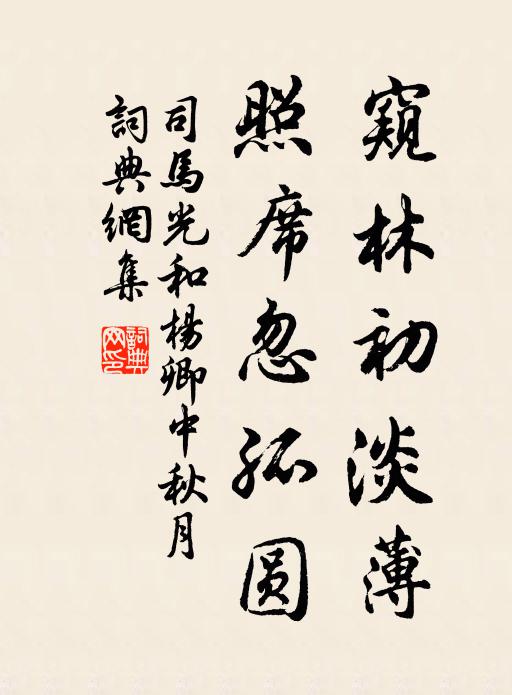 窺林初淡薄
照席忽孤圓
司馬光和楊卿中秋月
詞典網集
詞典网印